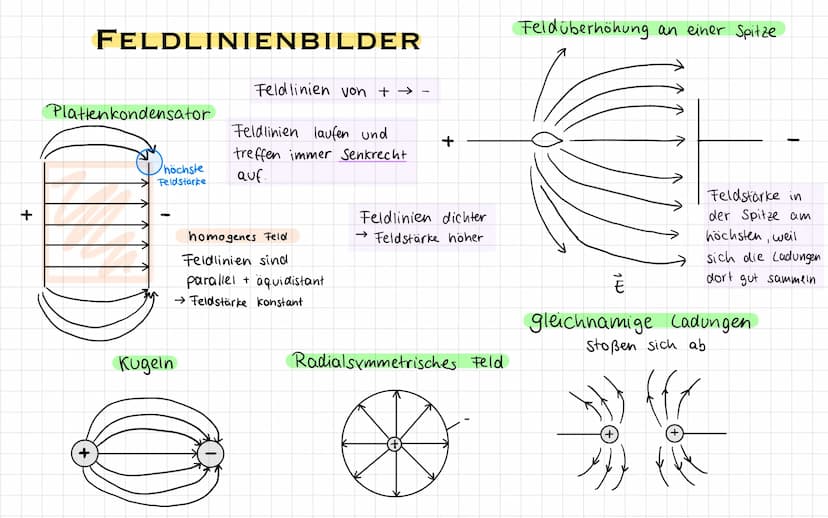 FELDLINIENBILDER
Feldüberhöhung an einer Spitze
Feldlinien von + → -
Plattenkondensator
Feldlinien laufen und
treffen immer senkrecht
auf.
+
-
höchste
Feldstärke
+
-
Feldlinien dichter
→ Feldstärke höher
homogenes Feld
Feldlinien sind
parallel + äquidistant
→ Feldstärke konstant
Feldstärke in
der Spitze am
höchsten, weil
sich die Ladungen
dort gut sammeln
E
gleichnamige Ladungen
stoßen sich ab
Kugeln
Radialsymmetrisches Feld
+
-
+
-
+
+